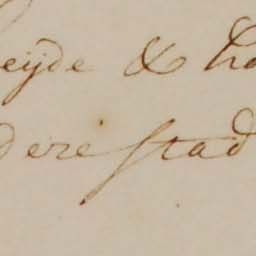 eijde & ha
dere stad